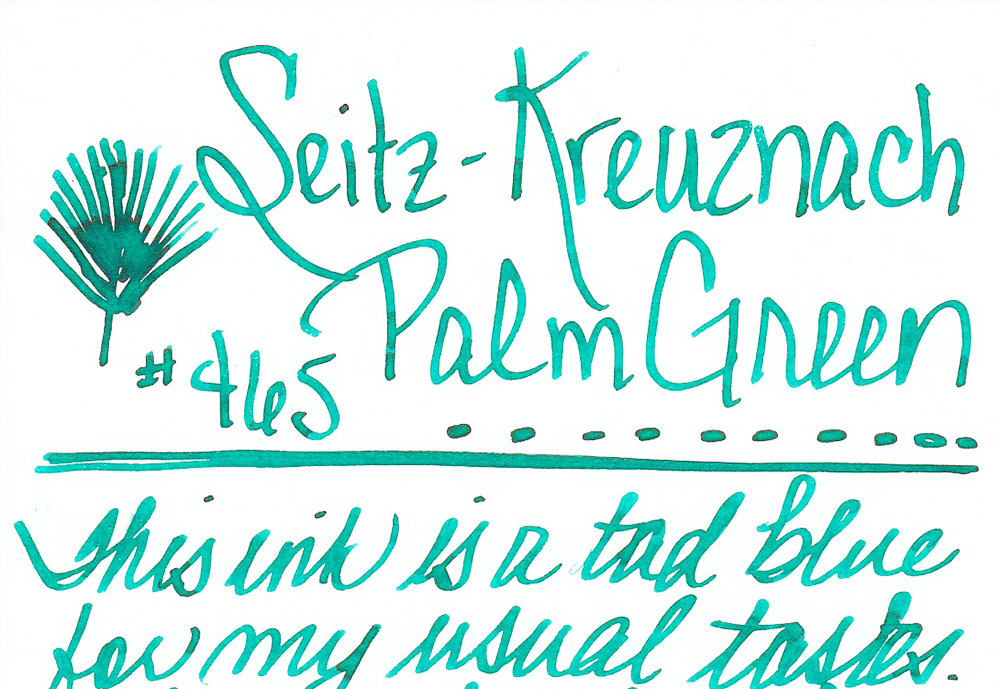 Seitz-Kreuznach
Palm Green
#465
This ink is a tad blue
for my usual tastes.